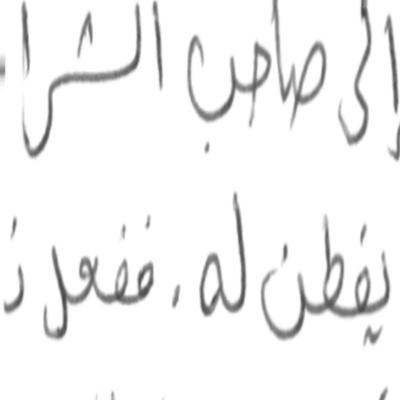 إلى صاحب الشرا
يفطن له . ففعل ذ